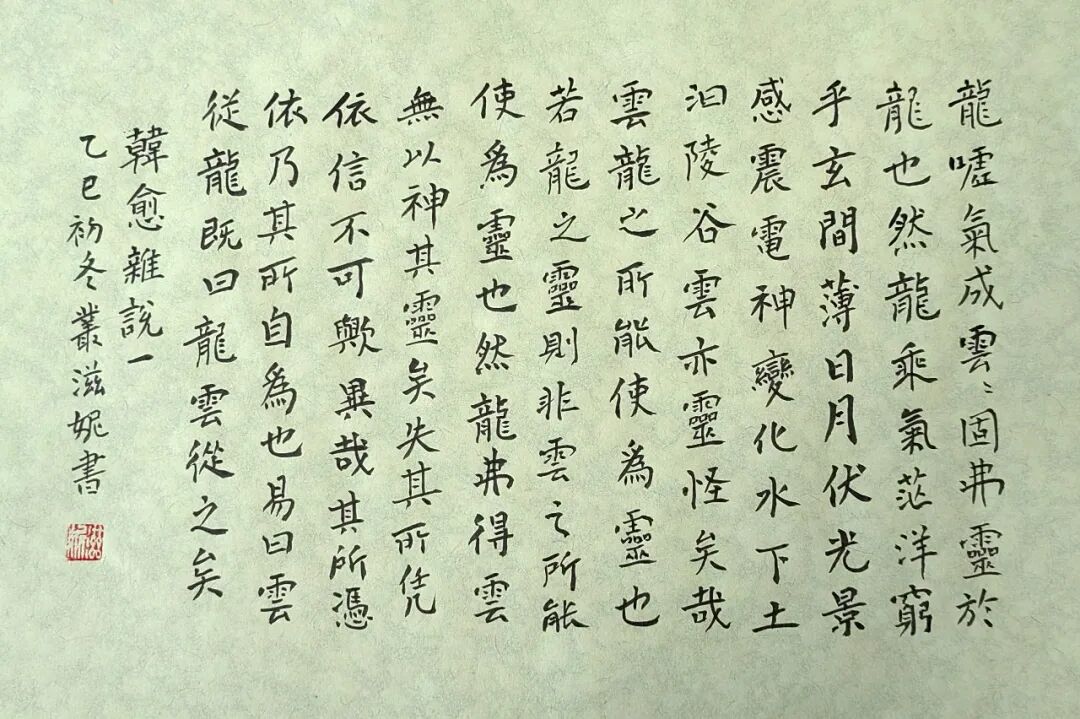 龍嘘氣成雲〻固弗靈於
龍也然龍乘氣茫洋窮
乎玄間薄日月伏光景
感震電神變化水下土
汩陵谷雲亦靈怪矣哉
雲龍之所能使為靈也
若龍之靈則非雲之所能
使為靈也然龍弗得雲
無以神其靈矣失其所凭
依信不可歟異哉其所憑
依乃其所自為也易曰雲
從龍既曰龍雲從之矣
韓愈雜說一
乙巳初冬叢滋妮書